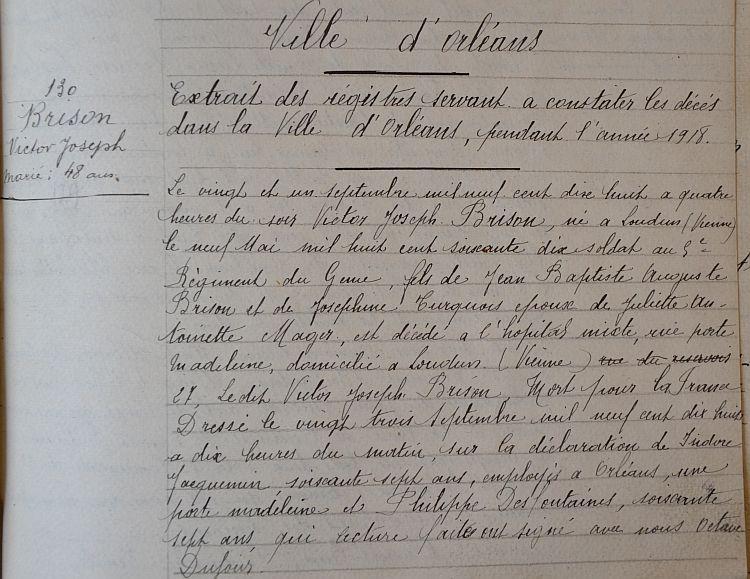 Ville d'Orléans
130
Brison
Victor Joseph
marié: 48 ans.
Extrait des régistres servant a constater les décés
dans la Ville d'Orléans, pendant l'année 1918.
Le vingt et un septembre mil neuf cent dix huit a quatre
heures du soir Victor Joseph Brison, né a Loudun (Vienne)
le neuf Mai mil huit cent soixante dix soldat au 5e
Régiment du Genie, fils de Jean Baptiste Auguste
Brison et de Joséphine Turquois epoux de Juliette An-
toinette Mager, est décédé a l'hopital mixte, rue porte
madeleine, domicilié a Loudun (Vienne) rue du reservois
27. Le dit Victor Joseph Brison Mort pour la France
Dressé le vingt trois septembre mil neuf cent dix huit
a dix heures du matin, sur la déclaration de Isidore
Jacquemin soixante sept ans, employés a Orléans, une
porte madeleine et Philippe Desfontaines, soixante
sept ans, qui lecture faite ont signé avec nous Octave
Dufour